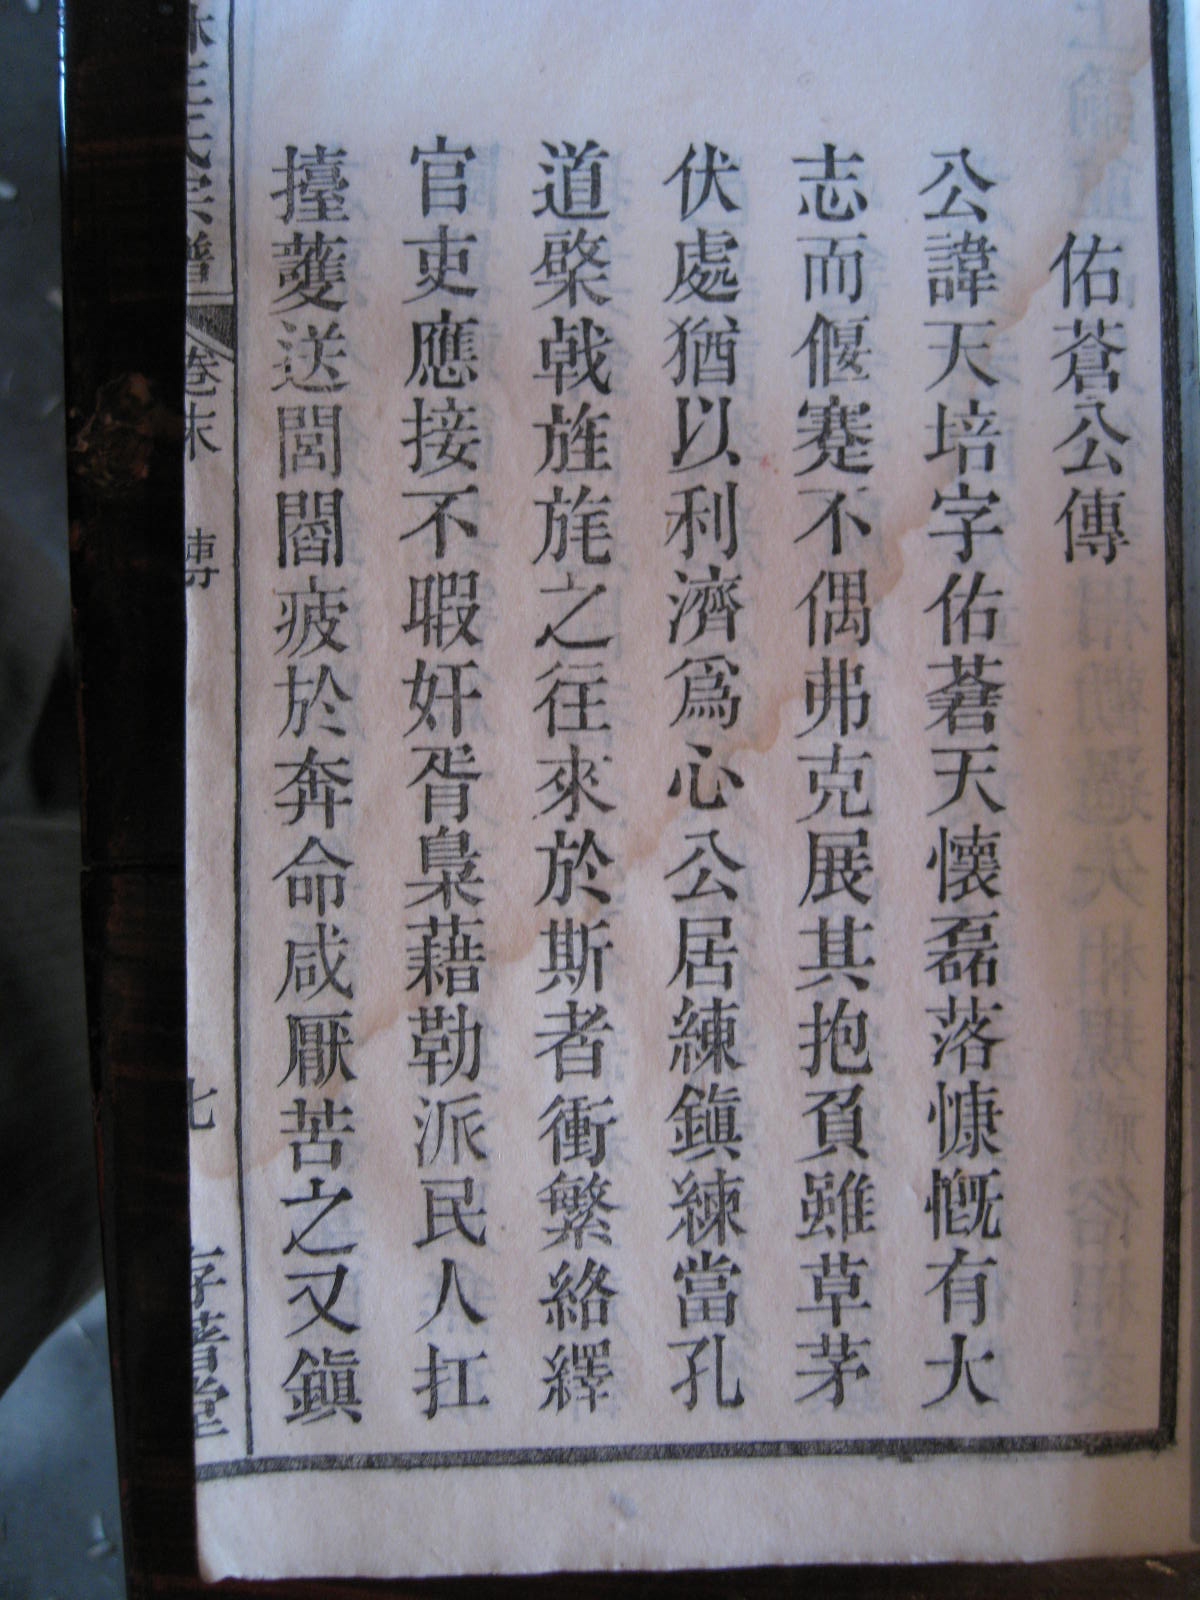 佑蒼公傳
公諱天培字佑蒼天懷磊落慷慨有大
志而偃蹇不偶弗克展其抱負雖草茅
伏處猶以利濟爲心公居練鎭練當孔
道棨戟旌旄之往來於斯者衝繁絡繹
官吏應接不暇奸胥梟藉勒派民人扛
擡護送閭閻疲於奔命咸厭苦之又鎭
王氏宗譜
卷末
傳
七